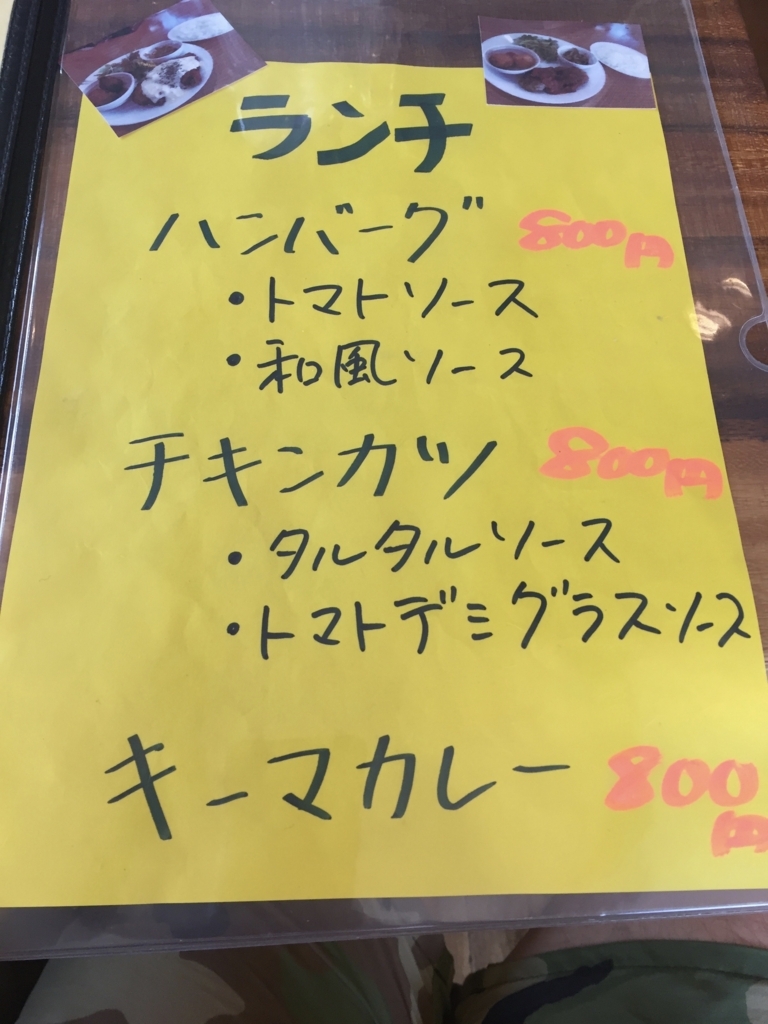 ランチ
ハンバーグ 800円
・トマトソース
・和風ソース
チキンカツ 800円
・タルタルソース
・トマトデミグラスソース
キーマカレー 800円